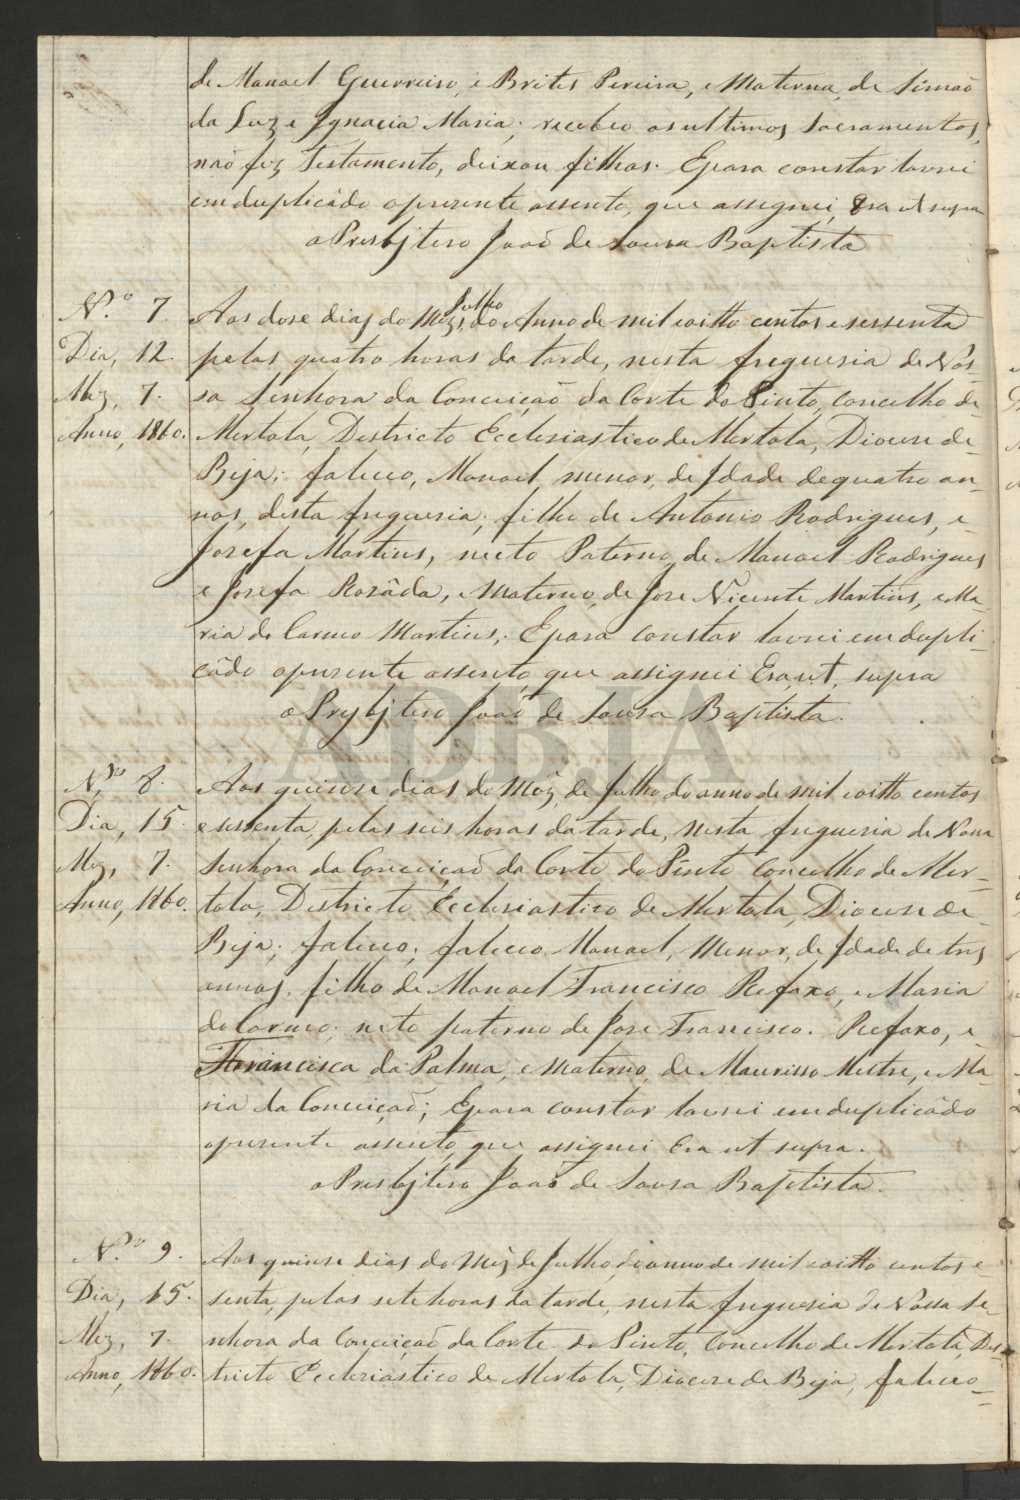 de Manoel Guerreiro, e Brites Pereira, e Materna, de Simaõ
da Luz e Ignacia Maria; recebeo os ultimos Sacramentos,
naõ fez Testamento, deixou filhos. E para constar lavrei
em duplicádo o prezente assento, que assignei, Era ut supra
o Presbjtero Joaõ de Sousa Baptista
N.º 7
Dia, 12.
Mez, 7.
Anno, 1860.
Julho
Aos dose dias do Mez, do Anno de mil e oitto centos e sessenta
pelas quatro horas da tarde, nesta freguesia de Nos-
sa Senhora da Conceiçaõ da Corte do Pinto, Concelho de
Mertola, Destricto Ecclesiastico de Mertola, Diocese de
Beja; faleceo, Manoel, menor, de Idade de quatro an-
nos, desta freguesia; filho de Antonio Rodrigues, e
Josefa Martins, neeto Paterno, de Manoel Rodrigues
e Josefa Rosáda, Materno, de Jose Vicente Martins, e Ma-
ria do Carmo Martins; E para constar lavrei em dupli-
cádo o prezente assento, que assignei Era ut, supra
o Presbjtero Joaõ de Sousa Baptista.
N.º 8.
Dia, 15.
Mez, 7.
Anno, 1860.
Aos quinse dias do Mez, de Julho do anno de mil e oitto centos
e sessenta, pelas seis horas da tarde, nesta freguesia de Nossa
Senhora da Conceiçaõ da Corte do Pinto Concelho de Mer-
tola, Destricto Ecclesiastico de Mertola, Diocese de
Beja; faleceo; faleceo Manoel, Menor, de Idade de tres
annos, filho de Manoel Francisco Refoxo, e Maria
do Carmo; neto paterno de Jose Francisco. Refoxo, e
Francisca da Palma, e Materno, de Maurisso Mestre, e Ma-
ria da Conceiçaõ; E para constar lavrei em duplicádo
o prezente assento, que assignei Era ut supra.
o Presbjtero Joaõ de Sousa Baptista.
N.º 9.
Dia, 15.
Mez, 7.
Anno, 1860.
Aos quinse dias do Mez de Julho, do anno de mil e oitto centos e-
senta, pelas sete horas da tarde, nesta freguesia de Nossa Se-
nhora da Conceiçaõ da Corte do Pinto, Concelho de Mertola, Des-
tricto Ecclesiástico de Mertola, Diocese de Beja, faleceo-
ADBJA